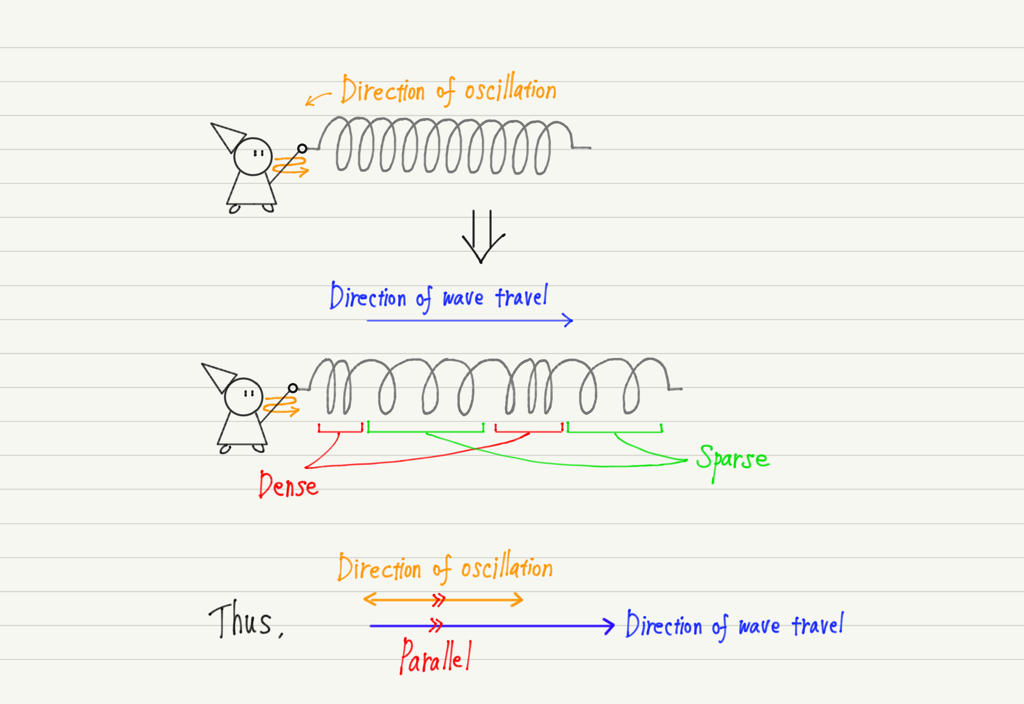 Direction of oscillation
Direction of wave travel
Dense
Sparse
Direction of oscillation
Thus,
Direction of wave travel
Parallel